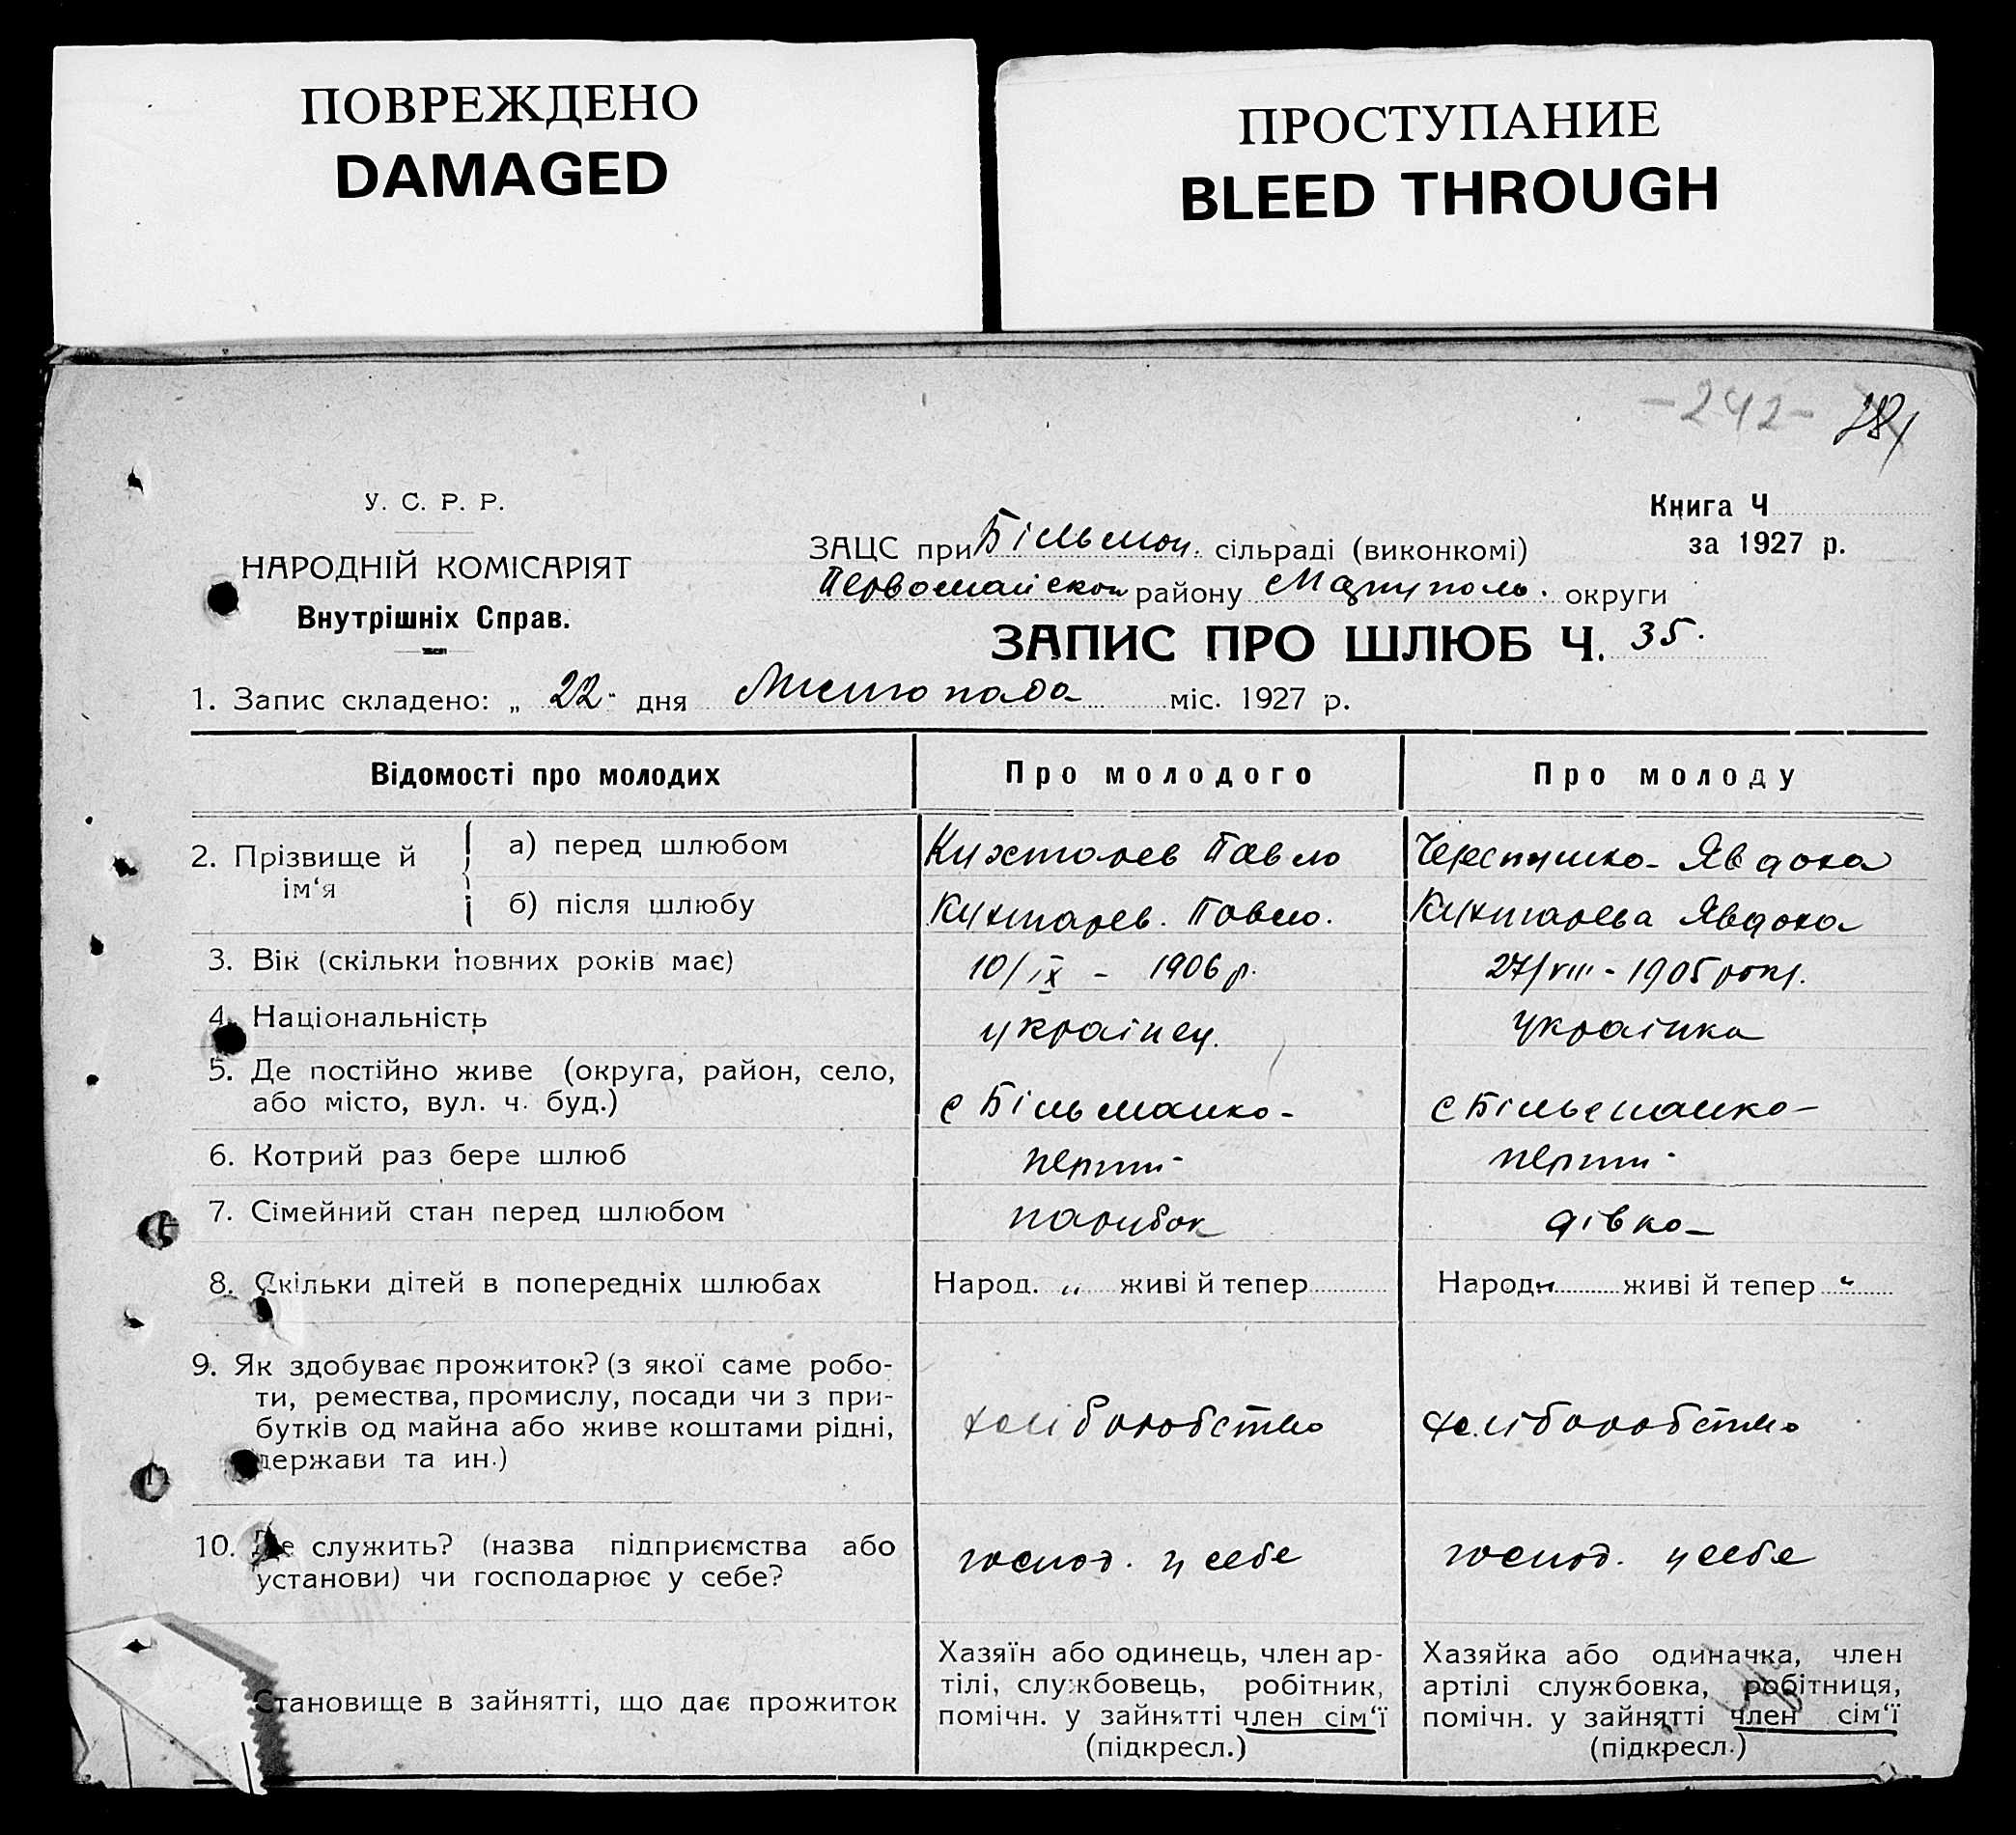 ПОВРЕЖДЕНО
DAMAGED
ПРОСТУПАНИЕ
BLEED THROUGH
-242-
У. С. Р. Р.
НАРОДНІЙ КОМІСАРІЯТ
Внутрішніх Справ.
Книга Ч
за 1927 р.
ЗАЦС при Більман. сільраді (виконкомі)
Первомайском району Маріуполь. округи
ЗАПИС ПРО ШЛЮБ Ч. 35.
1. Запис складено: „ 22 - дня Листопада міс. 1927 р.
Відомості про молодих
Про молодого
Про молоду
2. Прізвище й ім‘я
а) перед шлюбом
Кихтарев Павло
Черепушко Явдоха
б) після шлюбу
Кихтарев. Павло.
Кихтарева Явдоха
3. Вік (скільки повних років має)
10/IX - 1906 р.
27/VIII - 1905 року.
4. Національність
українец.
Українка
5. Де постійно живе (округа, район, село,
або місто, вул. ч. буд.)
с Більманка-
с Більманка-
6. Котрий раз бере шлюб
перший
перший
7. Сімейний стан перед шлюбом
парубок
дівка
8. Скільки дітей в попередніх шлюбах
Народ. „ живі й тепер
Народ. „ живі й тепер „
9. Як здобуває прожиток? (з якої саме робо-
ти, ремества, промислу, посади чи з при-
бутків од майна або живе коштами рідні,
держави та ин.)
хліборобство
хліборобство
10. Де служить? (назва підприємства або
установи) чи господарює у себе?
господ. у себе
господ. у себе
Становище в зайнятті, що дає прожиток
Хазяїн або одинець, член ар-
тілі, службовець, робітник,
помічн. у зайнятті член сім‘ї
(підкресл.)
Хазяйка або одиначка, член
артілі службовка, робітниця,
помічн. у зайнятті член сім‘ї
(підкресл.)